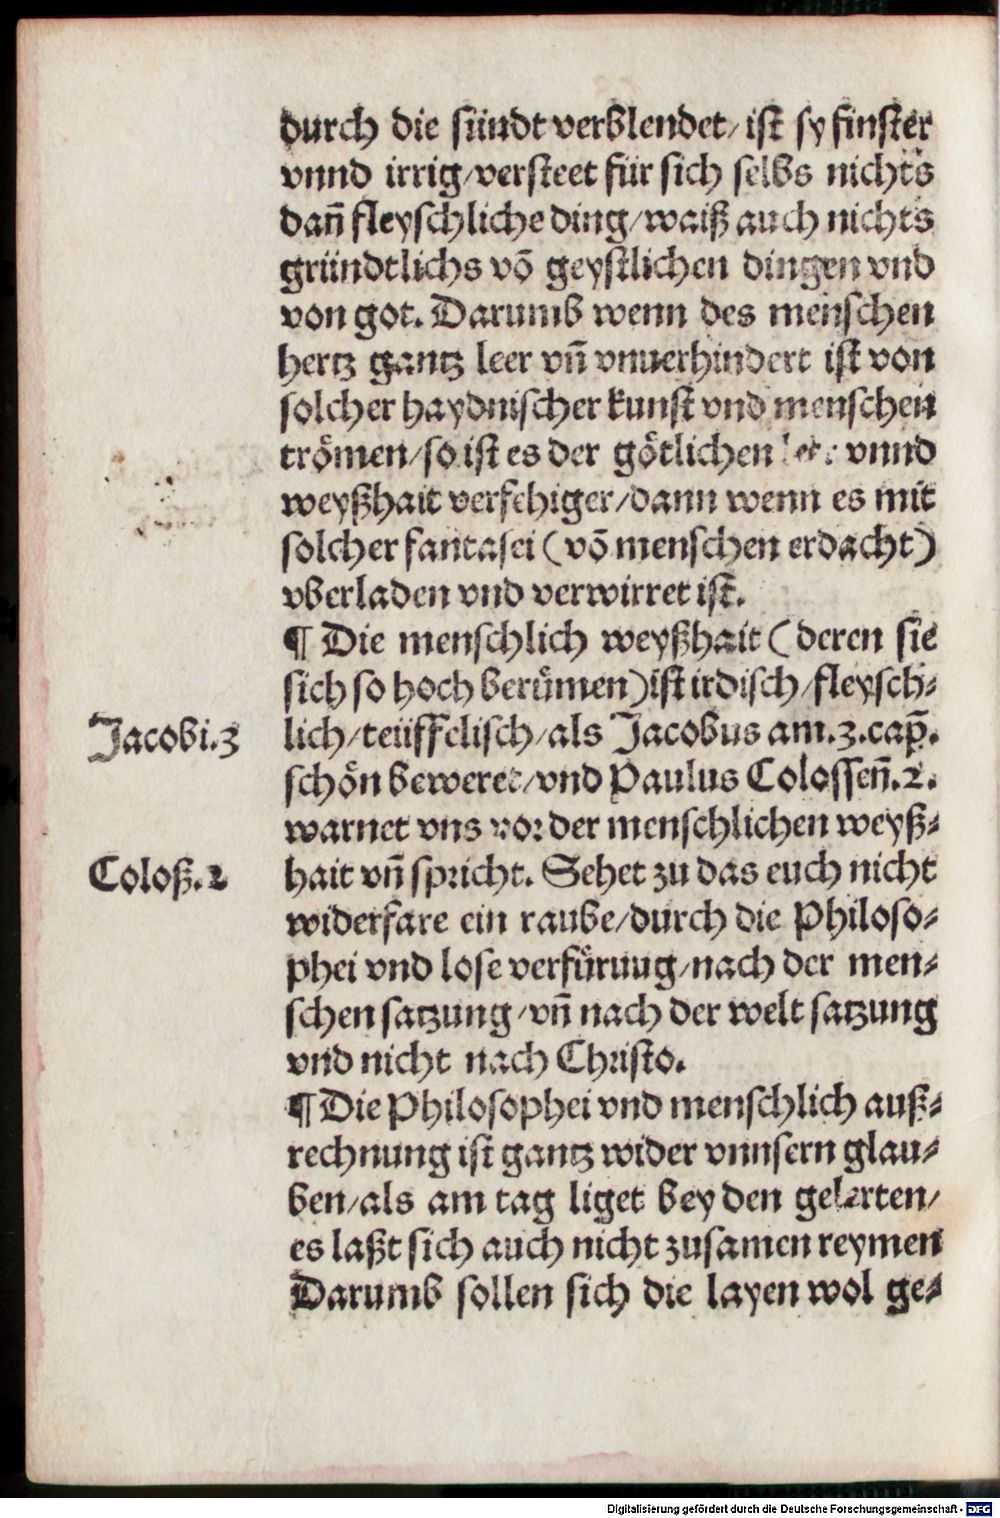 durch die sündt verblendet/ ist sy finster
vnnd irrig/ versteet für sich selbs nichts
dañ fleyschliche ding/ waiß auch nichts
gründtlichs võ geystlichen dingen vnd
von got. Darumb wenn des menschen
hertz gantz leer vñ vnuerhindert ist von
solcher haydnischer kunst vnd menschen
trömen/ so ist es der götlichen vnnd
weyßhait verfehiger/ dann wenn es mit
solcher fantasei (võ menschen erdacht)
vberladen vnd verwirret ist.
¶ Die menschlich weyßhait (deren sie
sich so hoch berümen) ist irdisch/ fleysch⸗
Jacobi.3
lich/ teüffelisch/ als Jacobus am.3.cap̃.
schön beweret/ vnd Paulus Colosseñ.2.
warnet vns vor der menschlichen weyß⸗
Coloß.2
hait vñ spricht. Sehet zu das euch nicht
widerfare ein raube/ durch die Philoso⸗
phei vnd lose verfüruug/ nach der men⸗
schen satzung/ vñ nach der welt satzung
vnd nicht nach Christo.
¶ Die Philosophei vnd menschlich auß⸗
rechnung ist gantz wider vnnsern glau⸗
ben/ als am tag liget bey den gelerten/
es laßt sich auch nicht zusamen reymen
Darumb sollen sich die layen wol ge⸗
Digitalisierung gefördert durch die Deutsche Forschungsgemeinschaft - DFG